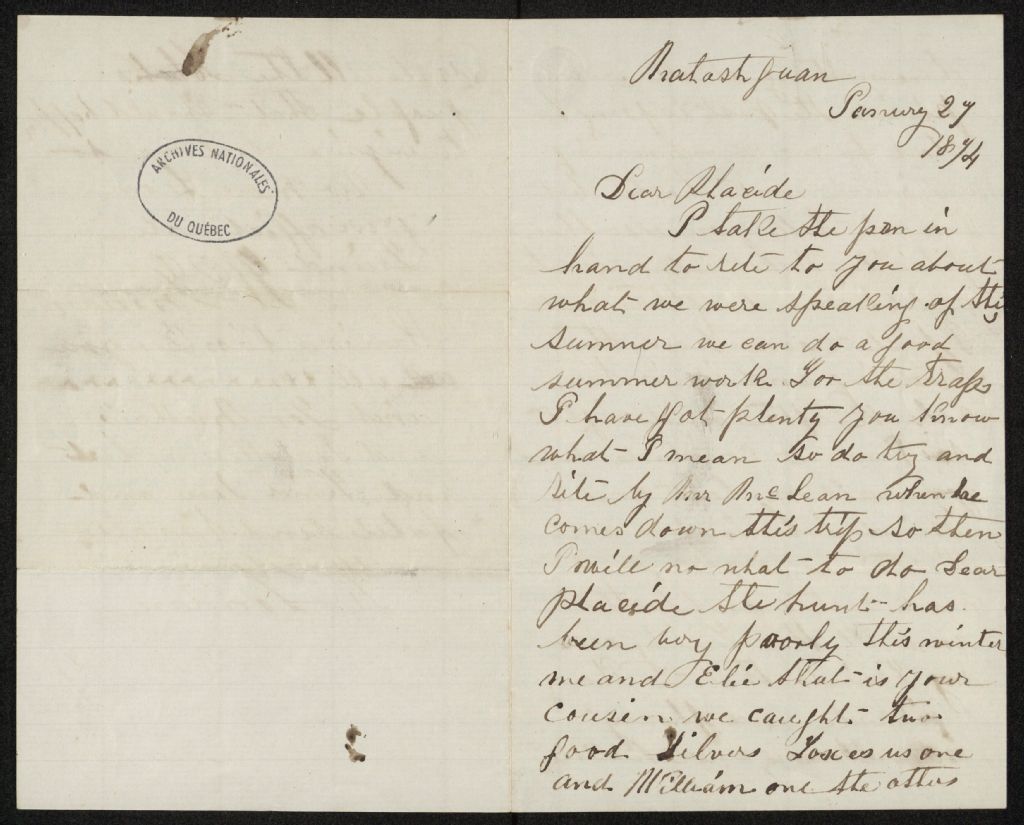 ARCHIVES NATIONALES
DU QUÉBEC
Natashquan
January 27
1874
Dear Placide
I take the pen in
hand to rite to you about
what we were speaking of this
summer we can do a good
summer work For the traps
I have got plenty you know
what I mean so do try and
rite by Mr McLean when he
comes down this trip so then
I will no what to do Dear
Placide the hunt has
been very poorly this winter
me and Elie that is your
cousin we caught two
good Silvers Foxes us one
and William one the others